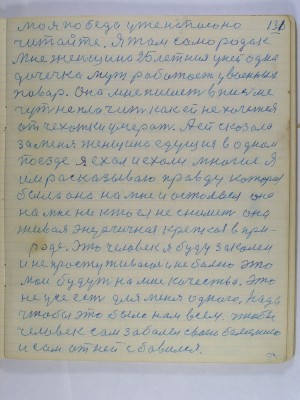 131
моя победа уженеписьмо
читайте. Ятам само родак
Мне женщина 25 летняя у ней одна
дочечка муж работает увоенных
повар. Она мне пишет в письме
чуть не плачит как ей не хочется
от чехотки умерать. А ей сказала
за меня женщина едущия в одном
поезде Я ехал и ехали многие я
им рассказываю правду которая
была она на мне и осталася она
на мне ни кто ея не снимет она
живая энергичная крепкая в при-
роде. Это человек я буду закален
и непростуживаюсь и не болею это
мои будут на мне качества. Это
не усе есть для меня одного, надо
чтобы это было нам всем. чтобы
человек сам забалел своею болезнию
и сам от ней сбавился.